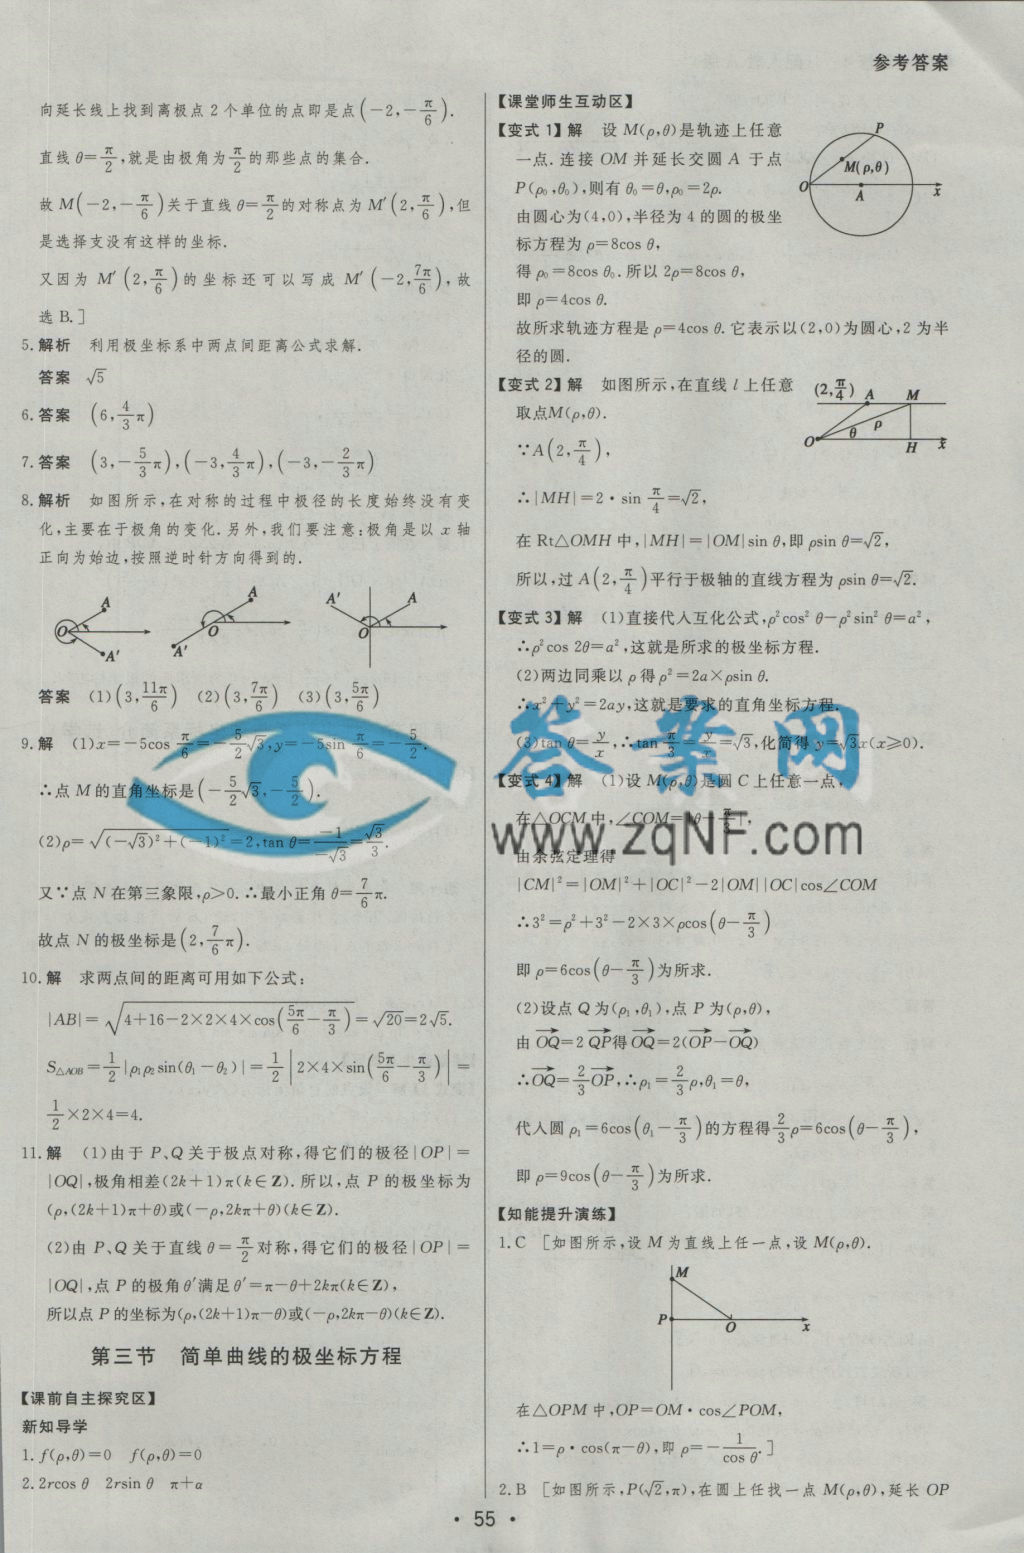 参考答案
向延长线上找到离极点 2 个单位的点即是点(-2,-π/6).
直线 θ=π/2,就是由极角为π/2的那些点的集合.
故 M(-2,-π/6)关于直线 θ=π/2的对称点为 M′(2,π/6),但
是选择支没有这样的坐标.
又因为 M′(2,π/6)的坐标还可以写成 M′(-2,7π/6),故
选 B.]
5.解析 利用极坐标系中两点间距离公式求解.
答案 √5
6.答案 (6,4/3π)
7.答案 (3,-5/3π),(-3,4/3π),(-3,-2/3π)
8.解析 如图所示,在对称的过程中极径的长度始终没有变
化,主要在于极角的变化.另外,我们要注意:极角是以 x 轴
正向为始边,按照逆时针方向得到的.
A O A′ A O A′ A′ A O
答案 (1)(3,11π/6) (2)(3,7π/6) (3)(3,5π/6)
9.解 (1)x=-5cos π/6=-5/2√3,y=-5sin π/6=-5/2.
∴点 M 的直角坐标是(-5/2√3,-5/2).
(2)ρ=√((-√3)²+(-1)²)=2,tan θ=-1/-√3=√3/3.
又∵点 N 在第三象限,ρ>0.∴最小正角 θ=7/6π.
故点 N 的极坐标是(2,7/6π).
10.解 求两点间的距离可用如下公式:
|AB|=√(4+16-2×2×4×cos(5π/6-π/3))=√20=2√5.
S△AOB=1/2|ρ₁ρ₂sin(θ₁-θ₂)|=1/2|2×4×sin(5π/6-π/3)|=
1/2×2×4=4.
11.解 (1)由于 P、Q 关于极点对称,得它们的极径|OP|=
|OQ|,极角相差(2k+1)π(k∈Z).所以,点 P 的极坐标为
(ρ,(2k+1)π+θ)或(-ρ,2kπ+θ)(k∈Z).
(2)由 P、Q 关于直线 θ=π/2对称,得它们的极径|OP|=
|OQ|,点 P 的极角 θ′满足 θ′=π-θ+2kπ(k∈Z),
所以点 P 的坐标为(ρ,(2k+1)π-θ)或(-ρ,2kπ-θ)(k∈Z).
第三节 简单曲线的极坐标方程
【课前自主探究区】
新知导学
1.f(ρ,θ)=0 f(ρ,θ)=0
2.2rcos θ 2rsin θ π+α
【课堂师生互动区】
【变式 1】解 设 M(ρ,θ)是轨迹上任意
一点.连接 OM 并延长交圆 A 于点
P(ρ₀,θ₀),则有 θ₀=θ,ρ₀=2ρ.
由圆心为(4,0),半径为 4 的圆的极坐
标方程为 ρ=8cos θ,
得 ρ₀=8cos θ₀.所以 2ρ=8cos θ,
即 ρ=4cos θ.
P M(ρ,θ) O A x
故所求轨迹方程是 ρ=4cos θ.它表示以(2,0)为圆心,2 为半
径的圆.
【变式 2】解 如图所示,在直线 l 上任意
取点M(ρ,θ).
(2,π/4) A M O θ ρ H x
∵A(2,π/4),
∴|MH|=2·sin π/4=√2,
在 Rt△OMH 中,|MH|=|OM|sin θ,即 ρsin θ=√2,
所以,过 A(2,π/4)平行于极轴的直线方程为 ρsin θ=√2.
【变式 3】解 (1)直接代入互化公式,ρ²cos² θ-ρ²sin² θ=a²,
∴ρ²cos 2θ=a²,这就是所求的极坐标方程.
(2)两边同乘以 ρ 得 ρ²=2a×ρsin θ.
∴x²+y²=2ay,这就是要求的直角坐标方程.
(3)tan θ=y/x,∴tan π/3=y/x=√3,化简得 y=√3x(x≥0).
【变式 4】解 (1)设 M(ρ,θ)是圆 C 上任意一点,
在△OCM 中,∠COM=|θ-π/3|,
由余弦定理得
|CM|²=|OM|²+|OC|²-2|OM||OC|cos∠COM
∴3²=ρ²+3²-2×3×ρcos(θ-π/3)
即 ρ=6cos(θ-π/3)为所求.
(2)设点 Q 为(ρ₁,θ₁),点 P 为(ρ,θ),
由 OQ→=2 QP→得 OQ→=2(OP→-OQ→)
∴OQ→=2/3 OP→,∴ρ₁=2/3ρ,θ₁=θ,
代入圆 ρ₁=6cos(θ₁-π/3)的方程得2/3ρ=6cos(θ-π/3),
即 ρ=9cos(θ-π/3)为所求.
【知能提升演练】
1.C [如图所示,设 M 为直线上任一点,设 M(ρ,θ).
M P O x
在△OPM 中,OP=OM·cos∠POM,
∴1=ρ·cos(π-θ),即 ρ=-1/cos θ.]
2.B [如图所示,P(√2,π),在圆上任找一点 M(ρ,θ),延长 OP
· 55 ·
答案网
www.zqNF.com